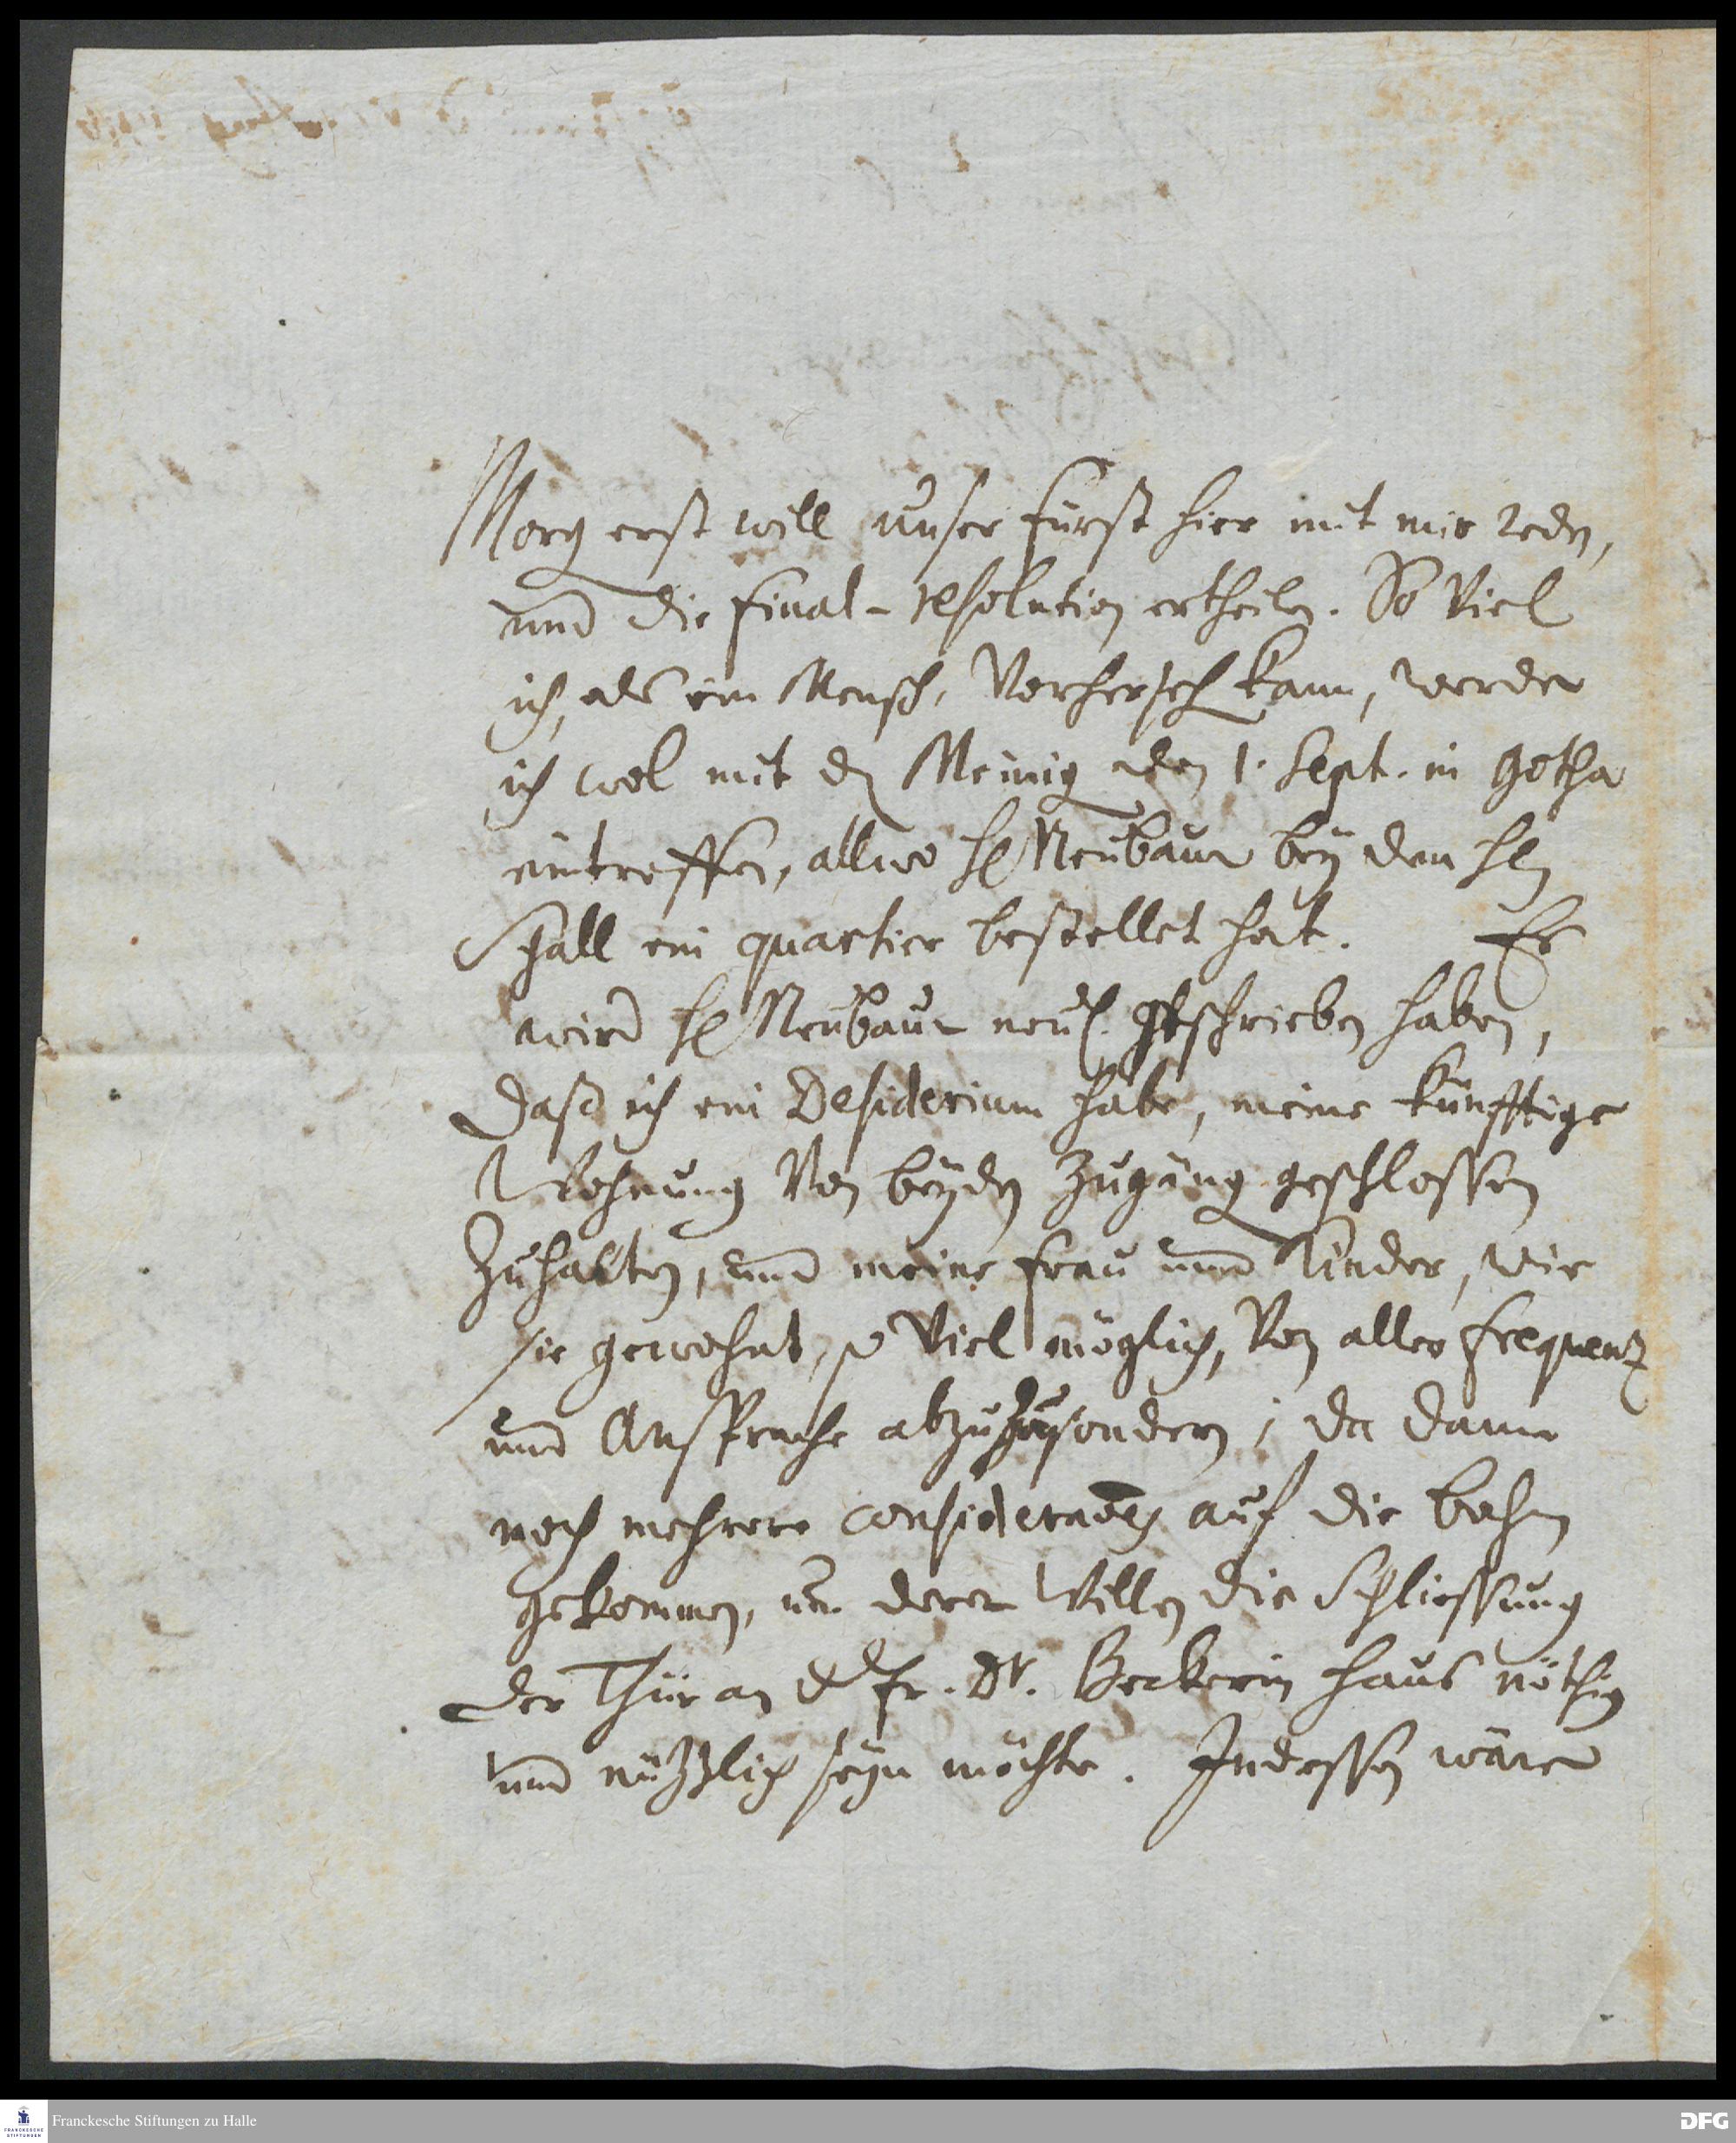 Morg erst will unser Fürst hier mit mir redn,
und die final-resolution ertheiln. So viel
ich, als ein Mensch, vorherseh kann, werde
ich wol mit dn Meinig den 1. Sept. in Gotha
eintreffen, allwo H Neubaur bey dem Hn
Schall ein quartier bestellet hat. Es
wird H Neubaur neul. geschrieben haben,
daß ich ein Desiderium habe, meine künfftige
Wohnung von beyden Zugäng geschlossen
zuhalten, und meine Frau und Kinder, wie
sie gewohnt, so viel möglich, von aller frequenz
und Ansprache abzusondern; da dann
noch mehrere considerationes auf die bahn
gekommen, um derer Willen die Schliessung
der Thür an der Fr. Dr. Beckerin Haus nöthig
und nützlich seyn möchte. Indessen wäre
Franckesche Stiftungen zu Halle
DFG